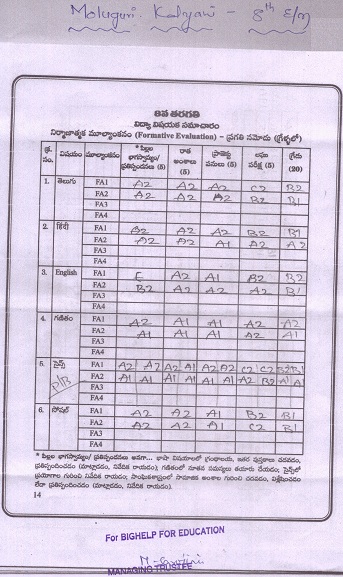 Moluguri. Kalyani - 8th E/M
8వ తరగతి
విద్యా విషయక సమాచారం
నిర్మాణాత్మక మూల్యాంకనం (Formative Evaluation) - ప్రగతి నమోదు (గ్రేడ్లలో)
క్ర. నం. విషయం మూల్యాంకనం * పిల్లల భాగస్వామ్యం/ ప్రతిస్పందనలు (5) రాత అంశాలు (5) ప్రాజెక్టు పనులు (5) లఘు పరీక్ష (5) గ్రేడు (20)
1. తెలుగు FA1 A2 A2 A2 C2 B2
FA2 A2 A2 A2 B2 B1
FA3
FA4
2. हिंदी FA1 A2 A2 A2 B2 B1
FA2 A2 A2 A1 A2 A2
FA3
FA4
3. English FA1 A2 A1 B2 B2
FA2 B2 A2 A2 A2 B1
FA3
FA4
4. గణితం FA1 A2 A1 A1 A2 A2
FA2 A1 A1 A1 A2 A1
FA3
FA4
5. సైన్స్ FA1 A2 A2 A2 A1 A2 A2 C2 C2 B2 B1
P/B FA2 A1 A1 A1 A1 A1 A1 A2 B2 A1 A1
FA3
FA4
6. సోషల్ FA1 A2 A2 A1 B2 B1
FA2 A2 A2 A1 C2 B1
FA3
FA4
* పిల్లల భాగస్వామ్యం/ ప్రతిస్పందనలు అనగా... భాషా విషయాలలో గ్రంథాలయ, ఇతర పుస్తకాలు చదవడం,
ప్రతిస్పందించడం (మాట్లాడడం, నివేదిక రాయడం); గణితంలో నూతన సమస్యలు తయారు చేయడం; సైన్స్‌లో
ప్రయోగాల గురించి నివేదిక రాయడం; సాంఘికశాస్త్రంలో సామాజిక అంశాల గురించి చదవడం, విశ్లేషించడం
లేదా ప్రతిస్పందించడం (మాట్లాడడం, నివేదిక రాయడం).
14
For BIGHELP FOR EDUCATION
MANAGING TRUSTEE